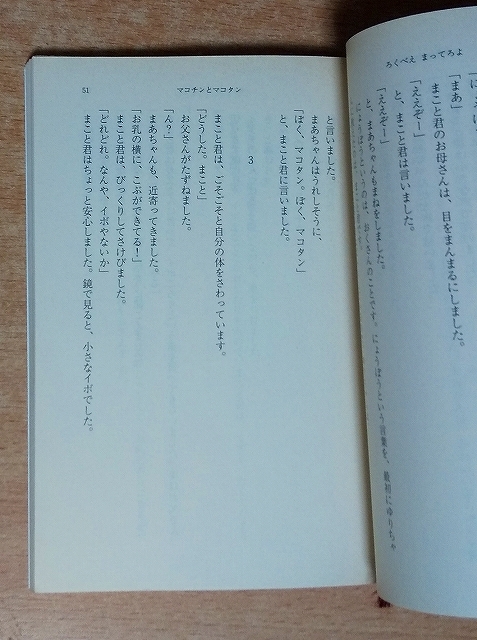 ろくべえ まってろよ
「まあ」
まこと君のお母さんは、目をまんまるにしました。
「ええぞー」
と、まこと君は言いました。
「ええぞー」
と、まあちゃんもまねをしました。
にょうぼうというのは、おくさんのことです。にょうぼうという言葉を、最初にゆりちゃ
51
マコチンとマコタン
と言いました。
まあちゃんはうれしそうに、
「ぼく、マコタン。ぼく、マコタン」
と、まこと君に言いました。
3
まこと君は、ごそごそと自分の体をさわっています。
「どうした。まこと」
お父さんがたずねました。
「ん？」
まあちゃんも、近寄ってきました。
「お乳の横に、こぶができてる！」
まこと君は、びっくりしてさけびました。
「どれどれ。なんや、イボやないか」
まこと君はちょっと安心しました。鏡で見ると、小さなイボでした。